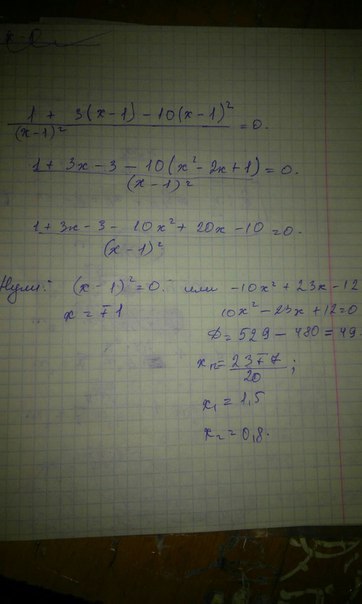 1 + 3(x-1) - 10(x-1)²
(x-1)² = 0.
1 + 3x - 3 - 10(x² - 2x + 1) = 0.
(x-1)²
1 + 3x - 3 - 10x² + 20x - 10 = 0.
(x-1)²
Нули: (x-1)² = 0. или -10x² + 23x - 12
x = ∓1 10x² - 23x + 12 = 0
D = 529 - 480 = 49
= 23∓7 ;
20
x₁ = 1,5
x₂ = 0,8.